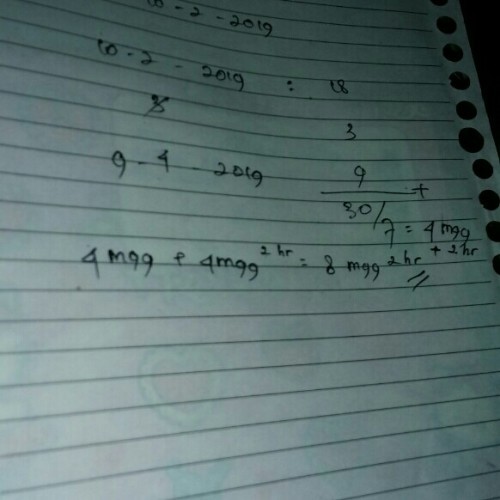 10-2-2019
10-2-2019 : 18
3 3
9-4-2019 9
+
30/7 = 4 mgg
+ 2 hr
4 mgg + 4 mgg 2 hr = 8 mgg 2 hr